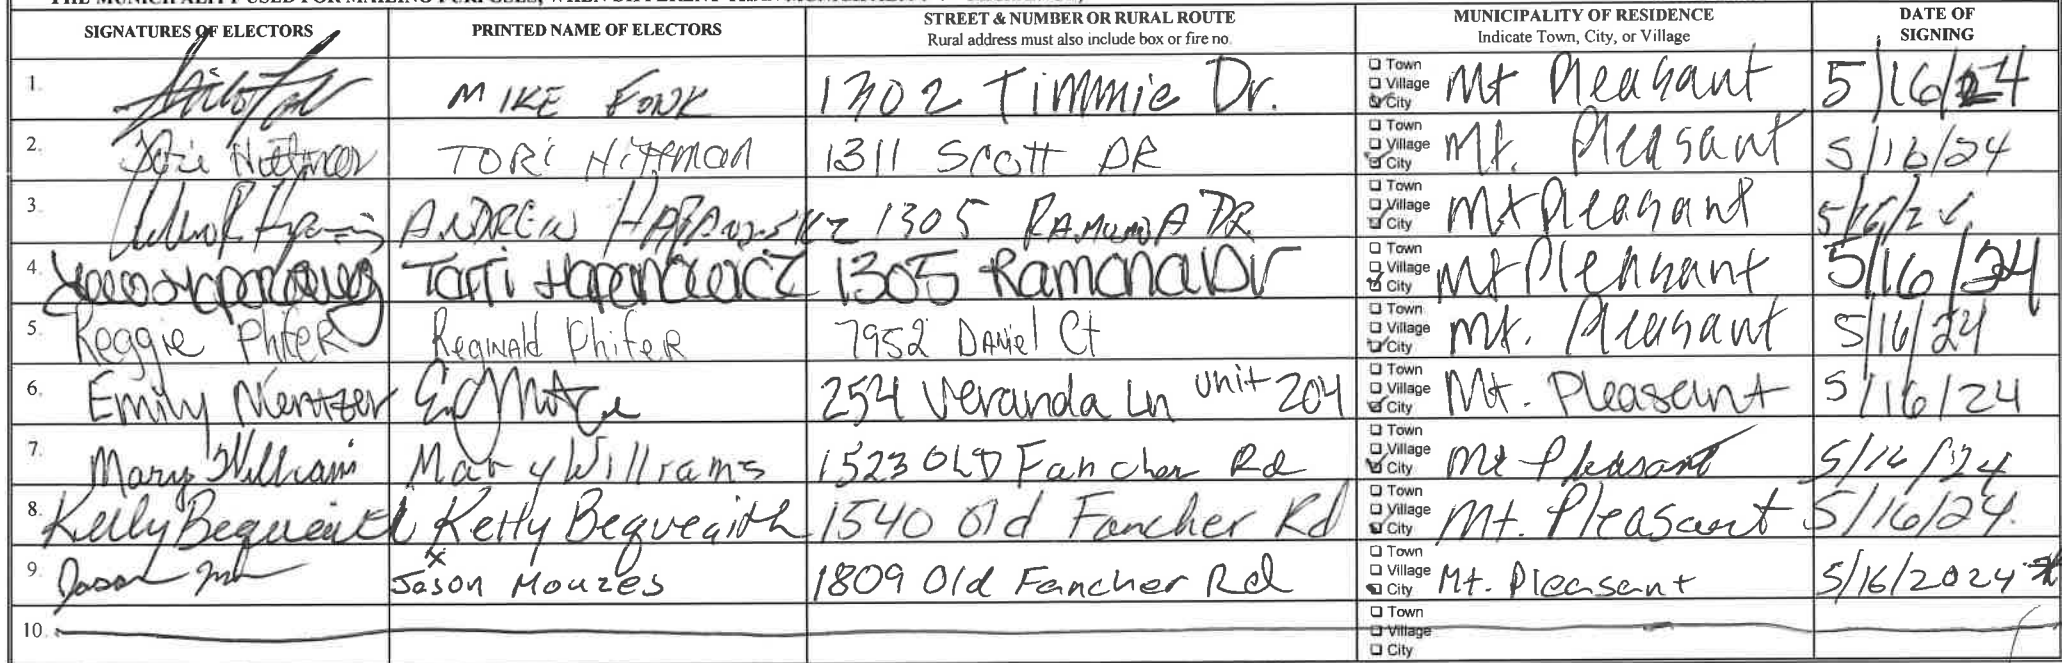 SIGNATURES OF ELECTORS PRINTED NAME OF ELECTORS STREET & NUMBER OR RURAL ROUTE MUNICIPALITY OF RESIDENCE DATE OF SIGNING
Rural address must also include box or fire no. Indicate Town, City, or Village
1. MIKE FONK 1302 Timmie Dr. Town Village City Mt Pleasant 5/16/24
2. TORi HiTTMAN 1311 Scott DR Town Village City Mt. Pleasant 5/16/24
3. ANDREW 1305 RAMONA DR Town Village City Mt Pleasant 5/16/24
4. 1305 Ramona Dr Town Village City Mt Pleasant 5/16/24
5. Reggie Phifer Reginald Phifer 7952 Daniel Ct Town Village City Mt. Pleasant 5/16/24
6. Emily Mentzer 254 Veranda Ln unit 204 Town Village City Mt. Pleasant 5/16/24
7. Mary Williams Mary Williams 1523 OLD Fancher Rd Town Village City Mt Pleasant 5/16/24
8. Kelly Bequeaith Kelly Bequeaith 1540 Old Fancher Rd Town Village City Mt. Pleasant 5/16/24
9. Jason x Jason Mouzes 1809 Old Fancher Rd Town Village City Mt. Pleasant 5/16/2024
10. Town Village City